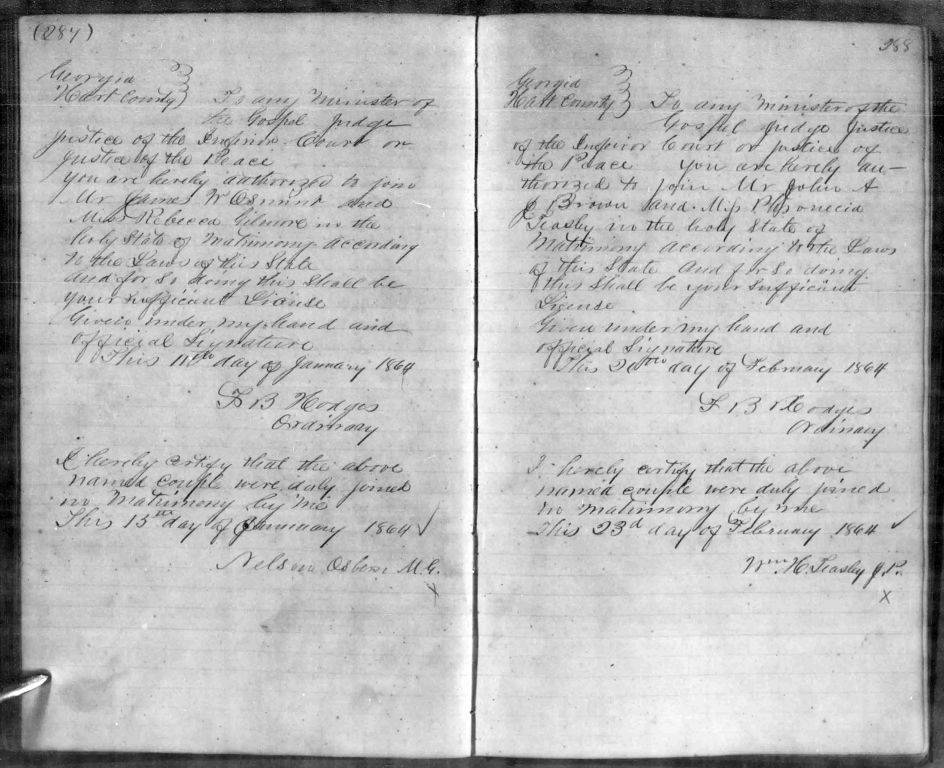 (287)
Georgia
Hart County } To any Minister of
the Gospel Judge
Justice of the Inferior Court or
Justice of the Peace
You are hereby authorized to join
Mr James W Osmint and
Miss Rebecca Gilmore in the
holy State of Matrimony according
to the Laws of this State
And for So doing this Shall be
your sufficient License
Given under my hand and
official Signature
This 11th day of January 1864
F B Hodges
Ordinary
I hereby certify that the above
named couple were duly joined
in Matrimony by me
This 15th day of January 1864
Nelson Osborn M.G.
x
288
Georgia
Hart County } To any Minister of the
Gospel Judge Justice
of the Inferior Court or Justice of
the Peace You are hereby au-
thorized to join Mr John A
J Brown and Miss
Teasley in the holy State of
Matrimony according to the Laws
of this State And for So doing
this Shall be your Sufficient
License
Given under my hand and
official Signature
This 20th day of February 1864
F B Hodges
Ordinary
I hereby certify that the above
named couple were duly joined
in Matrimony by me
This 23d day of February 1864
Wm H. Teasley J.P.
x